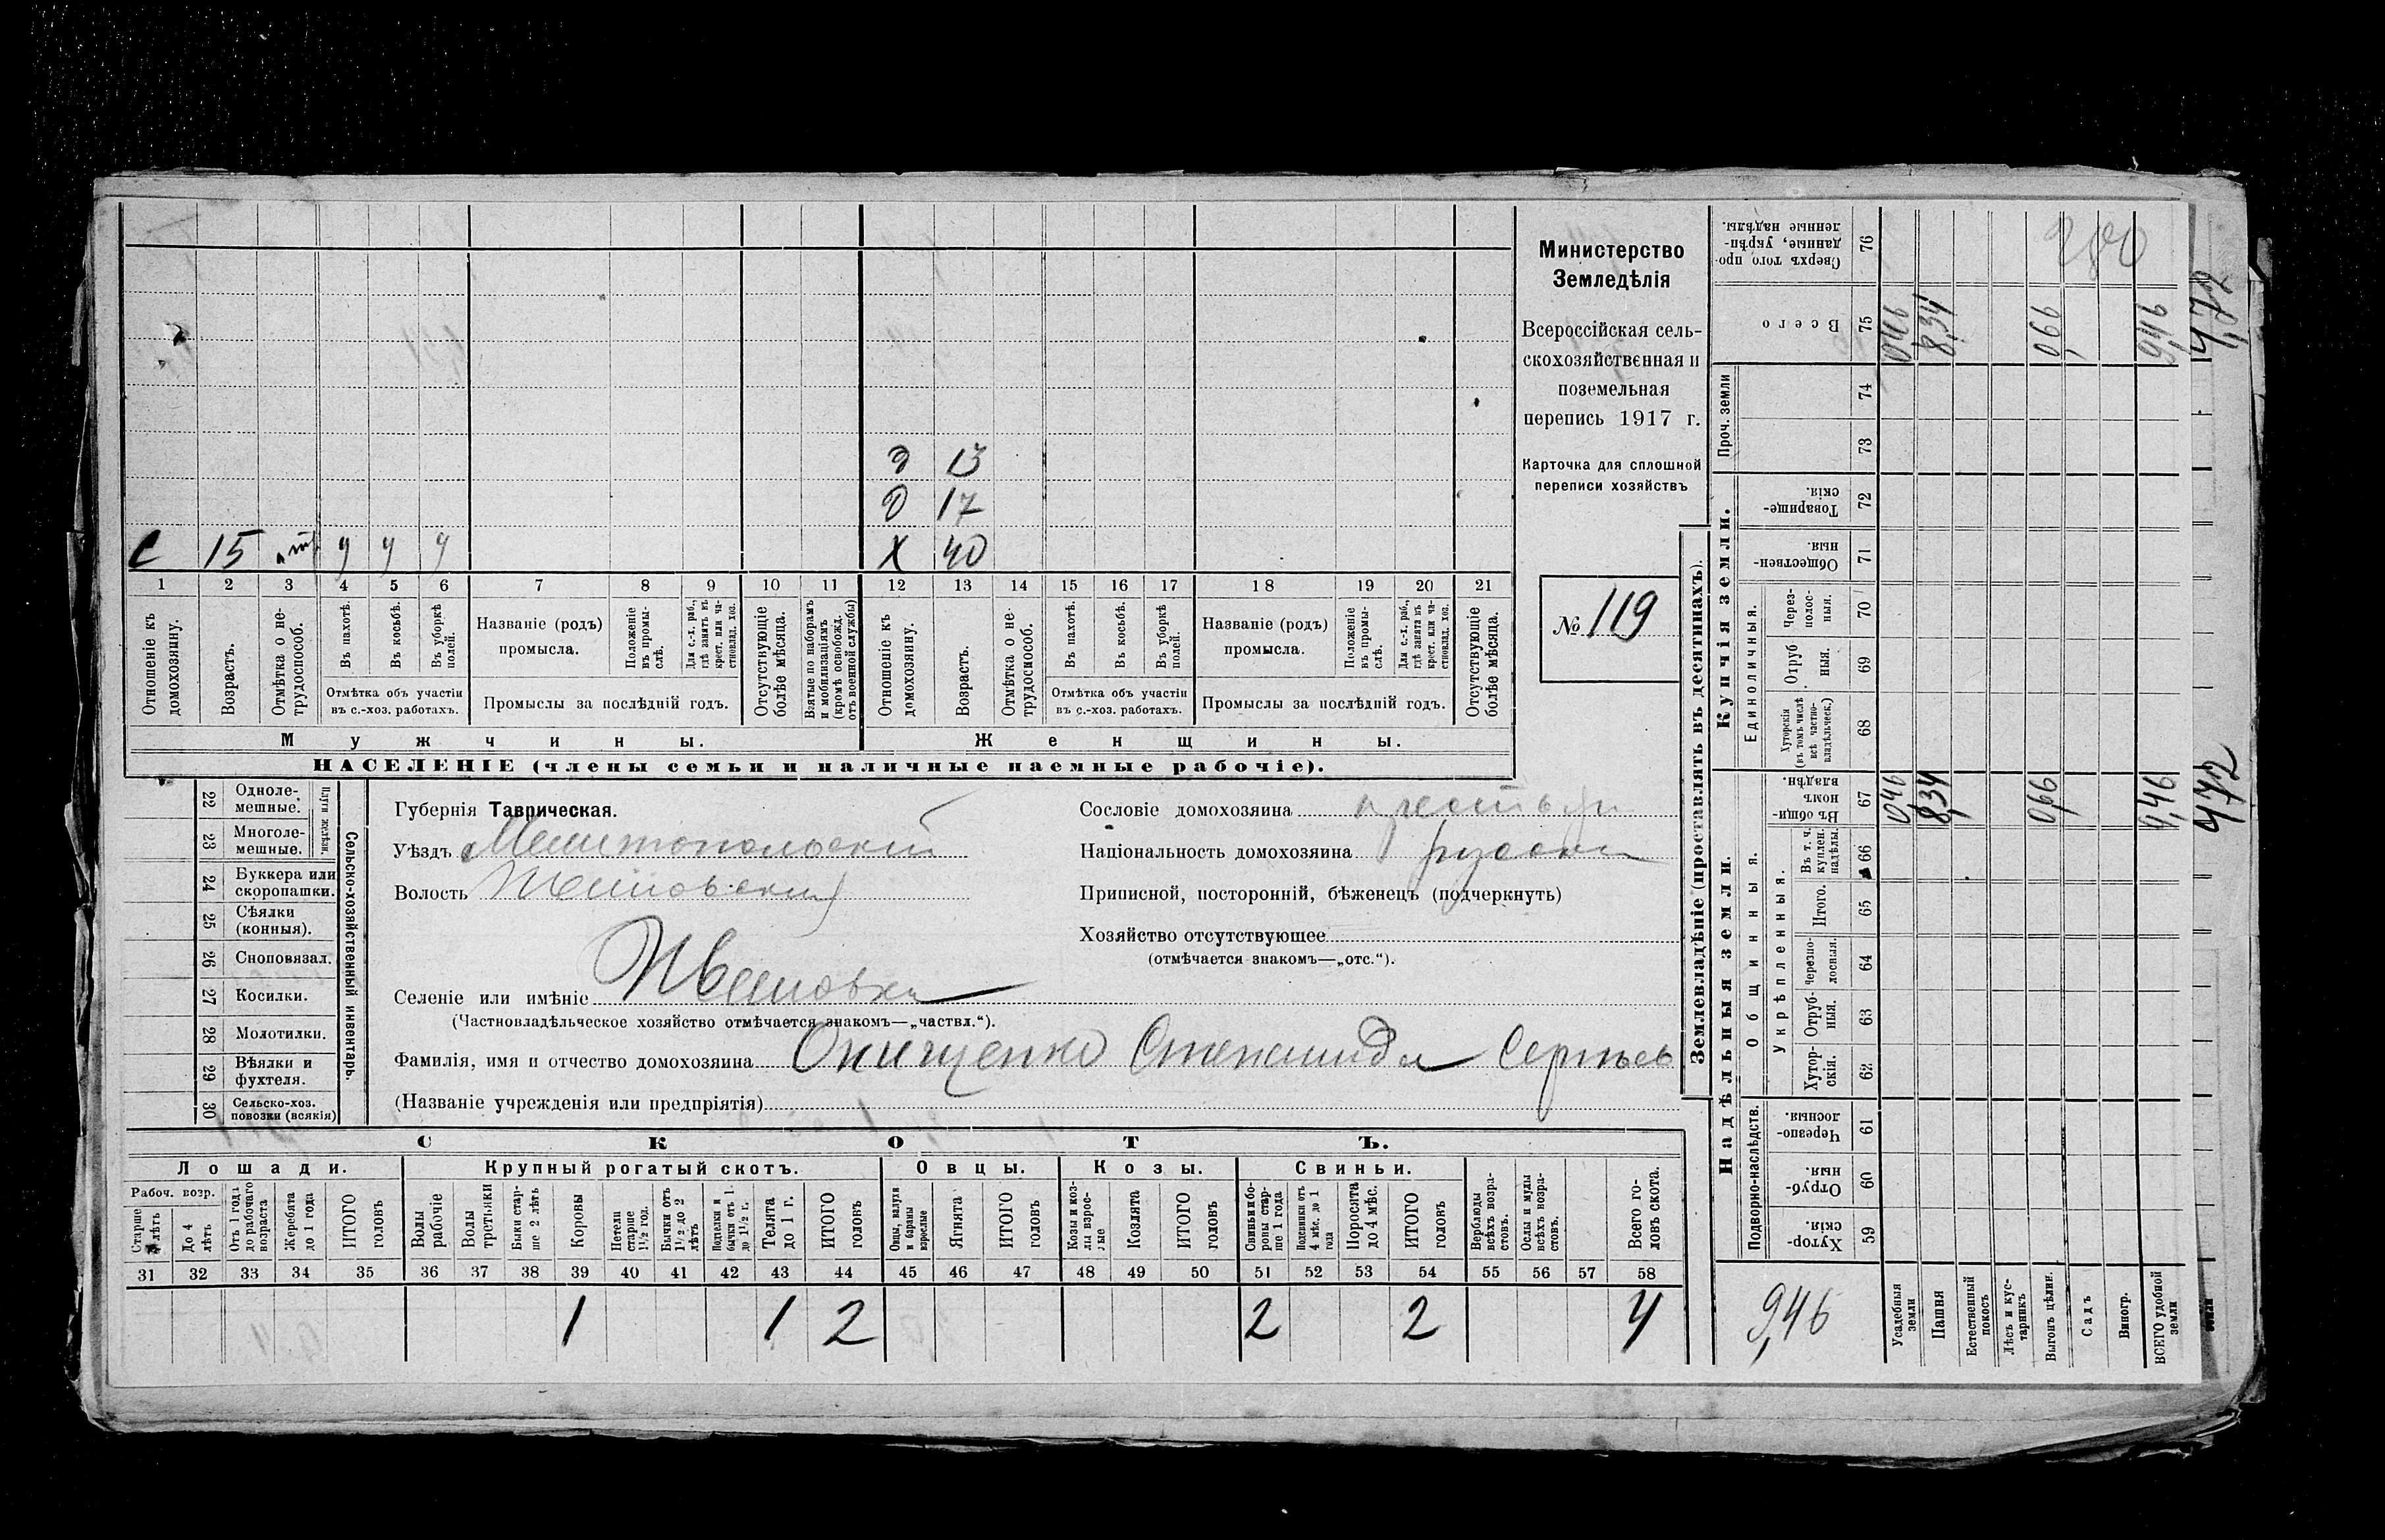 С 15 4 4 4
Д 13
Д 17
Х 40
1 2 3 4 5 6 7 8 9 10 11 12 13 14 15 16 17 18 19 20 21
Отношеніе къ домохозяину.
Возрастъ.
Отмѣтка о нетрудоспособ.
Въ пахотѣ.
Въ косьбѣ.
Въ уборкѣ полей.
Отмѣтка объ участіи
въ с.-хоз. работахъ.
Названіе (родъ)
промысла.
Положеніе въ промыслѣ.
Для с.-х. раб., гдѣ занятъ въ крест. или частновлад. хоз.
Промыслы за послѣдній годъ.
Отсутствующіе болѣе мѣсяца.
Взятые по наборамъ и мобилизаціямъ (кромѣ освобожд. отъ военной службы)
Отношеніе къ домохозяину.
Возрастъ.
Отмѣтка о нетрудоспособ.
Въ пахотѣ.
Въ косьбѣ.
Въ уборкѣ полей.
Отмѣтка объ участіи
въ с.-хоз. работахъ.
Названіе (родъ)
промысла.
Положеніе въ промыслѣ.
Для с.-х. раб., гдѣ занята въ крест. или частновлад. хоз.
Промыслы за послѣдній годъ.
Отсутствующіе болѣе мѣсяца.
Мужчины.
Женщины.
НАСЕЛЕНІЕ (члены семьи и наличные наемные рабочіе).
Министерство
Земледѣлія
Всероссійская сель-
скохозяйственная и
поземельная
перепись 1917 г.
Карточка для сплошной
переписи хозяйствъ
№ 119
Сельско-хозяйственный инвентарь.
Плуги желѣзн.
22 Одноле-
мешные.
23 Многоле-
мешные.
24 Буккера или
скоропашки.
25 Сѣялки
(конныя).
26 Сноповязал.
27 Косилки.
28 Молотилки.
29 Вѣялки и
фухтеля.
30 Сельско-хоз.
повозки (всякія)
Губернія Таврическая.
Уѣздъ Мелитопольскій
Волость
Селеніе или имѣніе Ивановка
(Частновладѣльческое хозяйство отмѣчается знакомъ—„частвл.“).
Фамилія, имя и отчество домохозяина Онищенко Степанида Сергѣев
(Названіе учрежденія или предпріятія)
Сословіе домохозяина
Національность домохозяина
Приписной, посторонній, бѣженецъ (подчеркнуть)
Хозяйство отсутствующее
(отмѣчается знакомъ—„отс.“).
СКОТЪ.
Лошади.
Крупный рогатый скотъ.
Овцы.
Козы.
Свиньи.
Рабоч. возр.
Старше 4 лѣтъ
До 4 лѣтъ
Отъ 1 года до рабочаго возраста
Жеребята до 1 года
ИТОГО головъ
Волы рабочіе
Волы третьяки
Быки старше 2 лѣтъ
Коровы
Нетели старше 1½ год.
Бычки отъ 1½ до 2 лѣтъ
Подтелки и бычки отъ 1 до 1½ г.
Телята до 1 г.
ИТОГО головъ
Овцы, валухи и бараны взрослые
Ягнята
ИТОГО головъ
Козы и козлы взрослые
Козлята
ИТОГО головъ
Свиньи и боровы старше 1 года
Подсвинки отъ 4 мѣс. до 1 года
Поросята до 4 мѣс.
ИТОГО головъ
Верблюды всѣхъ возрастовъ.
Ослы и мулы всѣхъ возрастовъ.
Всего головъ скота.
31 32 33 34 35 36 37 38 39 40 41 42 43 44 45 46 47 48 49 50 51 52 53 54 55 56 57 58
1 1 2 2 2 4
Землевладѣніе (проставлять въ десятинахъ).
Надѣльныя земли.
Купчія земли.
Проч. земли
Подворно-наслѣдств.
Общинныя.
Укрѣпленныя.
Единоличныя.
Сверхъ того проданные, укрѣпленные надѣлы. 76
Всего 75
74
73
Товарищескія. 72
Общественныя. 71
Черезполосныя. 70
Отрубныя. 69
Хуторскія (въ томъ числѣ всѣ частновладѣльческ.) 68
Въ общинномъ владѣн. 67
Въ т. ч. куплен. надѣлы. 66
Итого. 65
Черезполосныя. 64
Отрубныя. 63
Хуторскія. 62
Черезполосныя. 61
Отрубныя. 60
Хуторскія. 59
Усадебныя земли
Пашня
Естественный покосъ
Лѣсъ и кустарникъ
Выгонъ цѣлин.
Садъ
Виногр.
ВСЕГО удобной земли
046 8,34 066 9,46
046 8,34 066 9,46
4,72
9,46